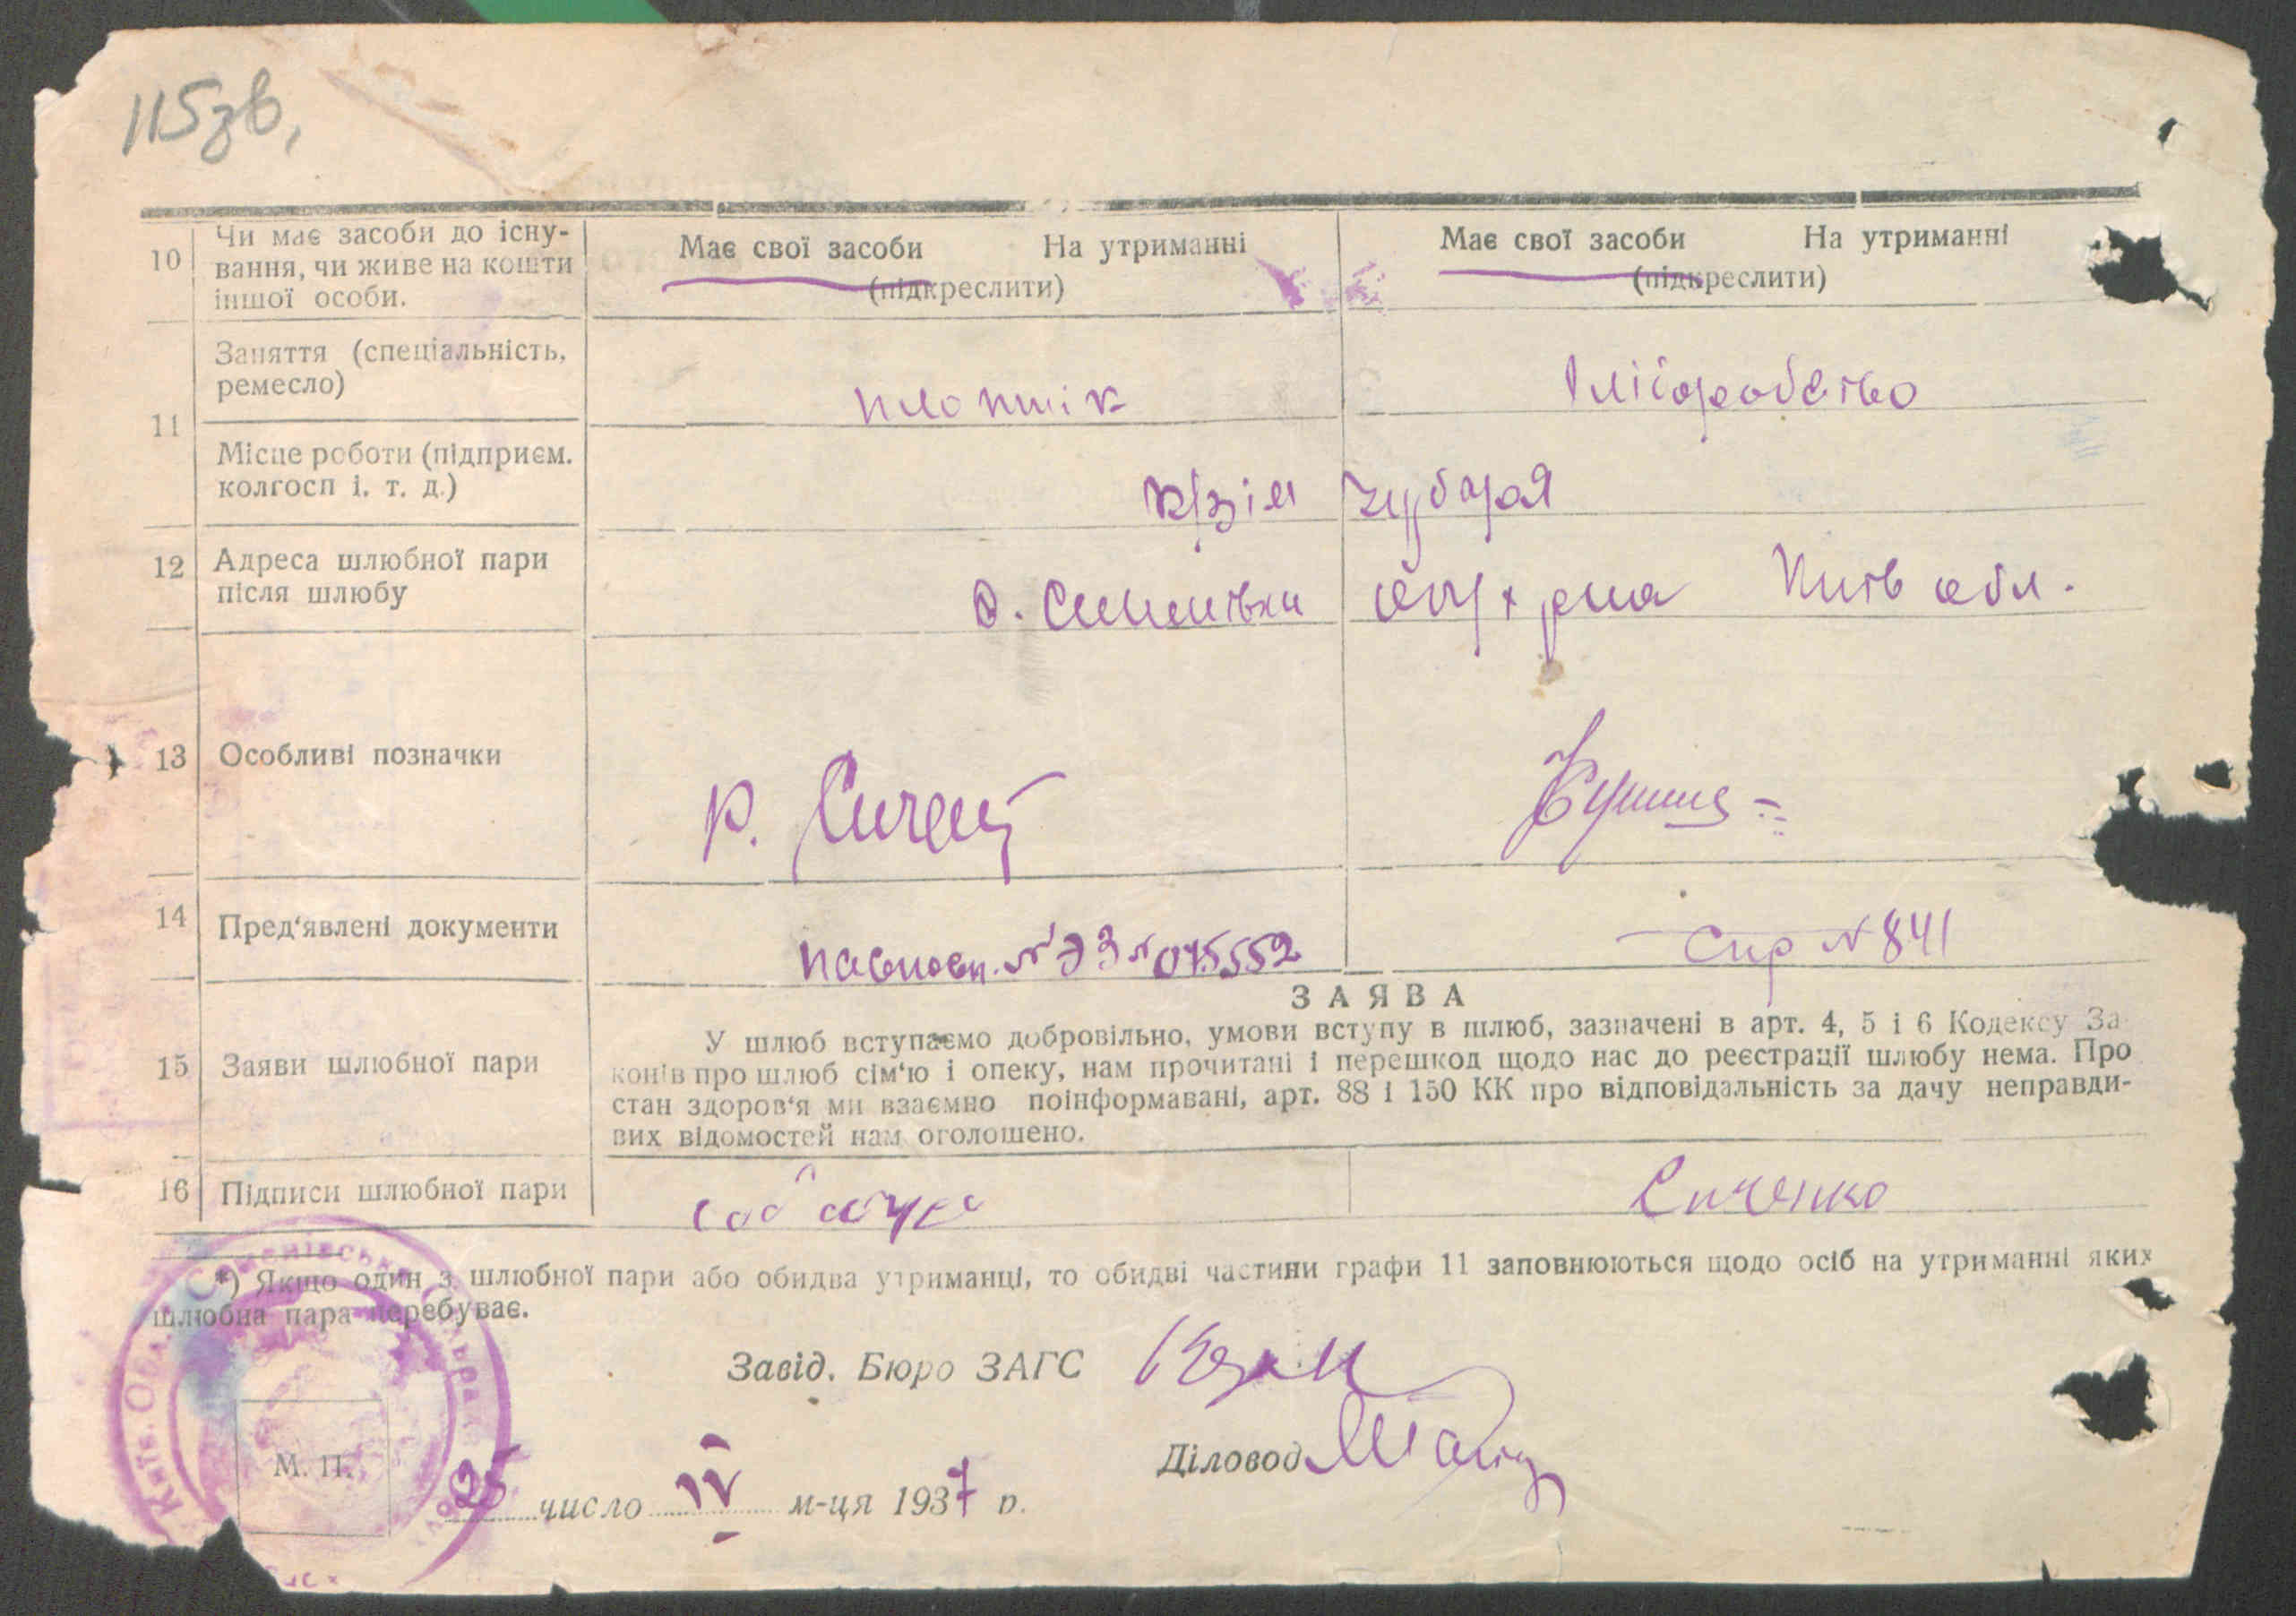 115зв,
10 Чи має засоби до існу-
вання, чи живе на кошти
іншої особи.
Має свої засоби На утриманні
(підкреслити)
Має свої засоби На утриманні
(підкреслити)
11 Заняття (спеціальність,
ремесло)
плотнік
Місце роботи (підприєм.
колгосп і. т. д.)
Чубаря
12 Адреса шлюбної пари
після шлюбу
обл.
13 Особливі позначки
14 Пред‘явлені документи
№ ЭЗ № 075552
Спр № 841
15 Заяви шлюбної пари
ЗАЯВА
У шлюб вступаємо добровільно, умови вступу в шлюб, зазначені в арт. 4, 5 і 6 Кодексу За-
конів про шлюб сім‘ю і опеку, нам прочитані і перешкод щодо нас до реєстрації шлюбу нема. Про
стан здоров‘я ми взаємно поінформавані, арт. 88 і 150 КК про відповідальність за дачу неправди-
вих відомостей нам оголошено.
16 Підписи шлюбної пари
Сиченко
*) Якщо один з шлюбної пари або обидва утриманці, то обидві частини графи 11 заповнюються щодо осіб на утриманні яких
шлюбна пара перебуває.
Завід. Бюро ЗАГС
Діловод
М. П.
25 число IV м-ця 1937 р.